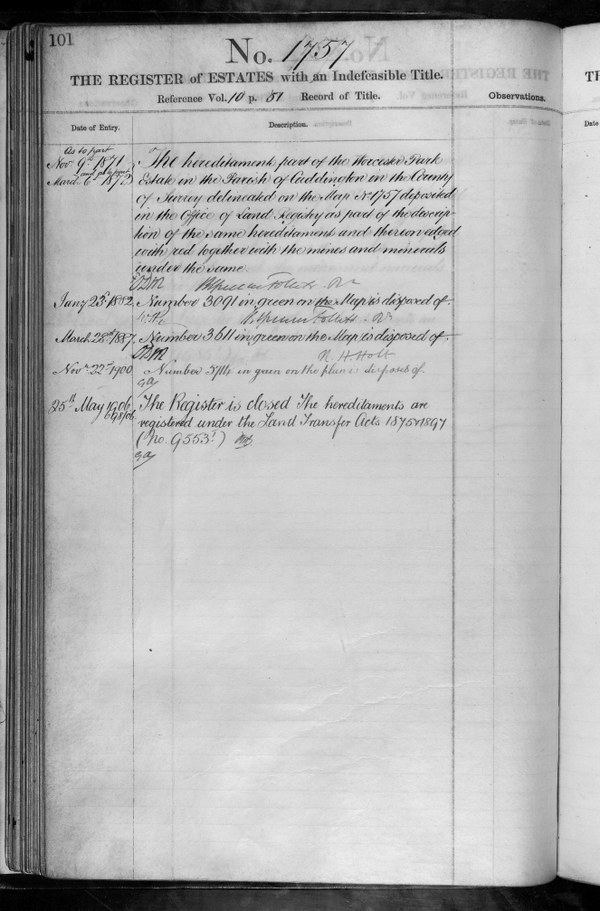 101
No. 1757
THE REGISTER of ESTATES with an Indefeasible Title.
Reference Vol. 10 p. 81 Record of Title.
Observations.
Date of Entry.
Description.
As to part
Nov. 9th 1871
March 6th 1872
The hereditament part of the Worcester Park
Estate in the Parish of Cuddington in the County
of Surrey delineated on the Map No 1757 deposited
in the Office of Land Registry as part of the descrip-
tion of the same hereditament and thereon edged
with red together with the mines and minerals
under the same
Jany 23d 1882. Number 3091 in green on the Map is disposed of.
March 28th 1887. Number 3611 in green on the Map is disposed of.
R. H. Holt
Novr 22nd 1900 Number in green on the plan is disposed of.
25th May 1906 The Register is closed The hereditaments are
registered under the Land Transfer Acts 1875 & 1897
(No. 9553)